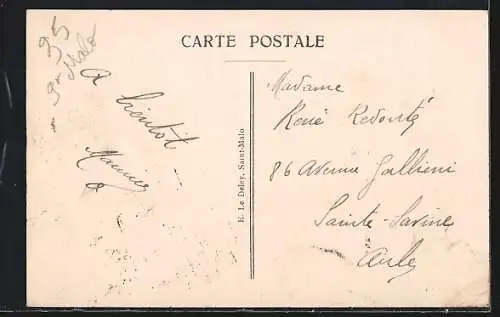 35
St Malo
CARTE POSTALE
A bientôt
Maurice
E. Le Deley, Saint-Malo
Madame
René Redouté
86 Avenue Gallieni
Sainte-Savine
Aube